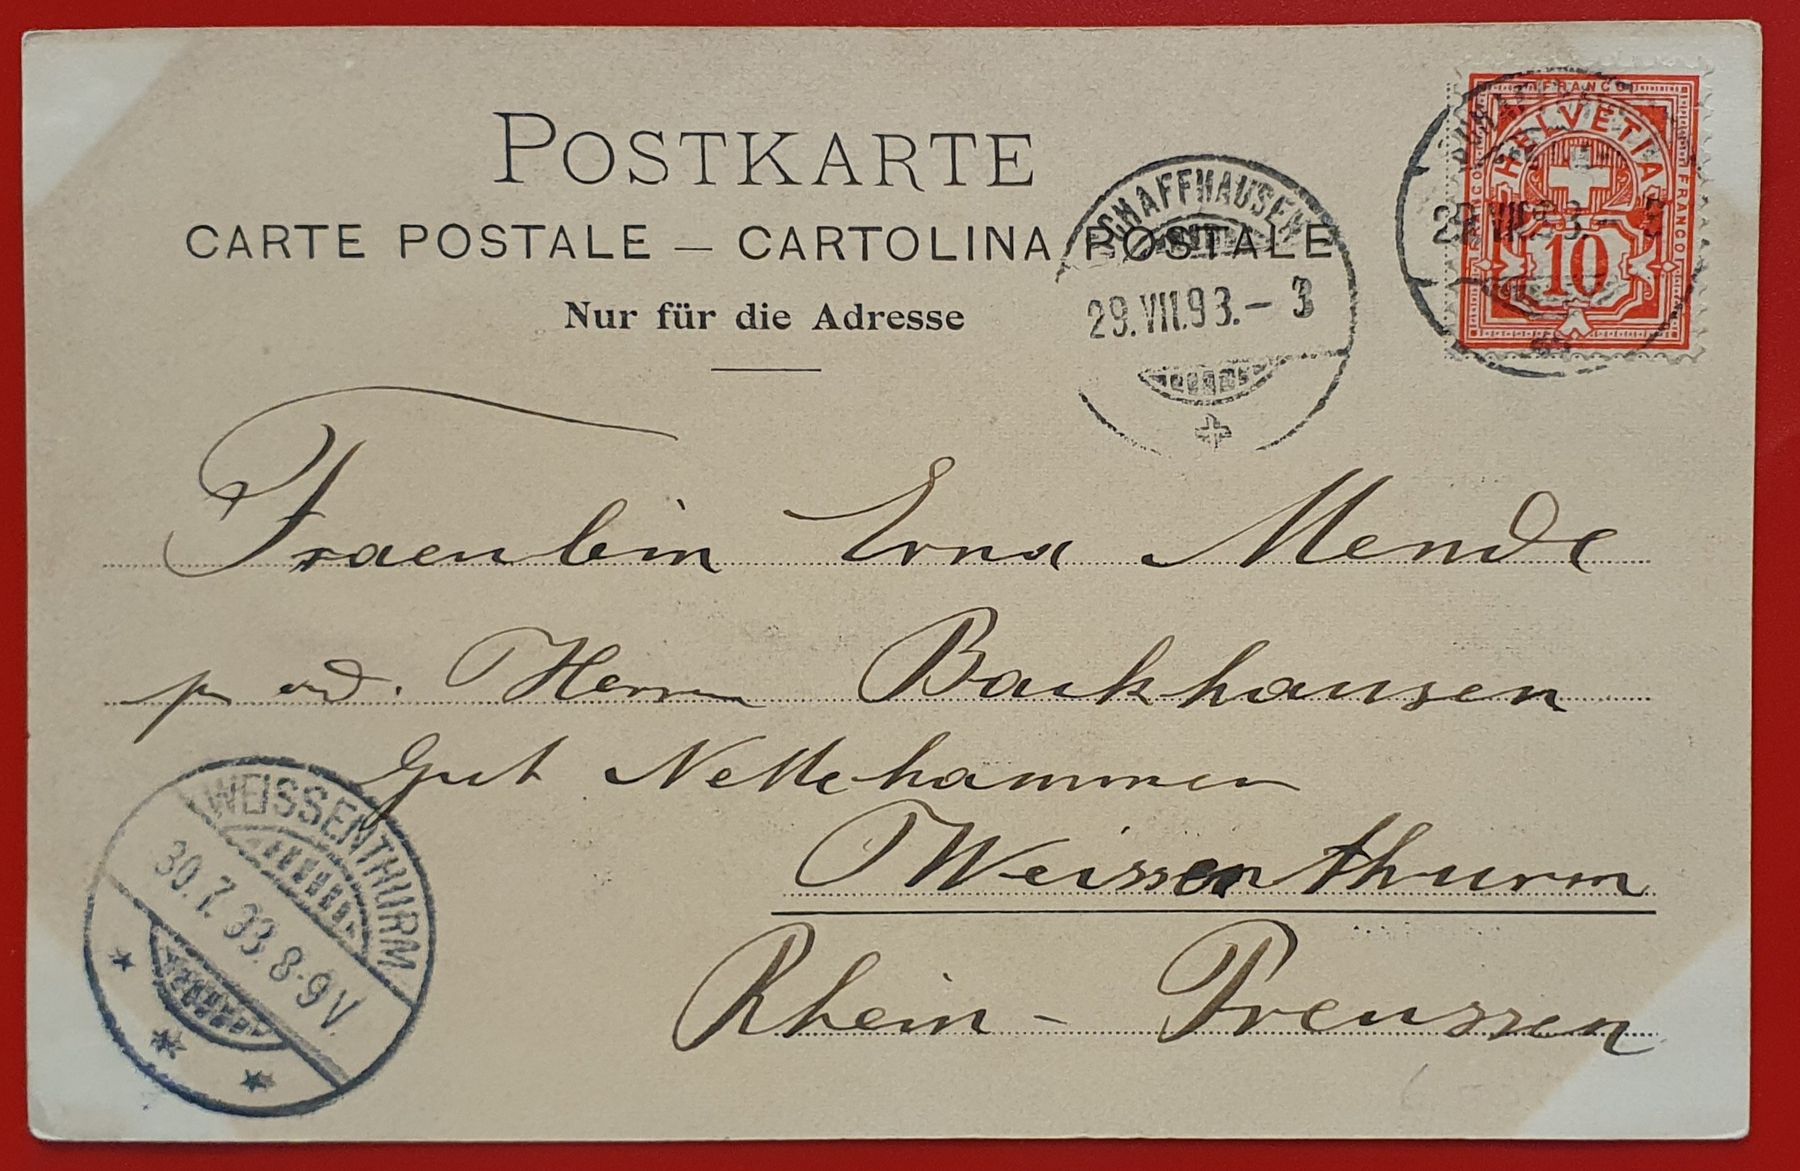 POSTKARTE
CARTE POSTALE — CARTOLINA POSTALE
Nur für die Adresse
SCHAFFHAUSEN
29.VII.93.-3
FRANCO
HELVETIA
FRANCO
FRANCO
10
Fraeulein Erna Mende
p ad. Herrn Backhausen
Gut Nettehammer
Weissenthurm
Rhein - Preussen
WEISSENTHURM
30.7.93.8-9V